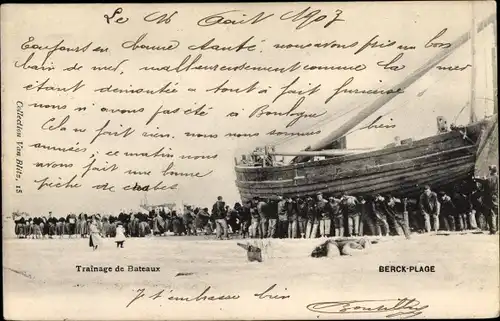 Le 16 Août 1907
Toujours en bonne santé, nous avons pris un bon
bain de mer, malheureusement comme la mer
étant démontée a tout à fait furieuse
nous n'avons pas été à Boulogne
Ça ne fait rien, nous nous sommes bien
amusés, ce matin nous
avons fait une bonne
pêche de crabes
Collection Van Blitz, 15
Trainage de Bateaux
BERCK-PLAGE
Je t'embrasse bien